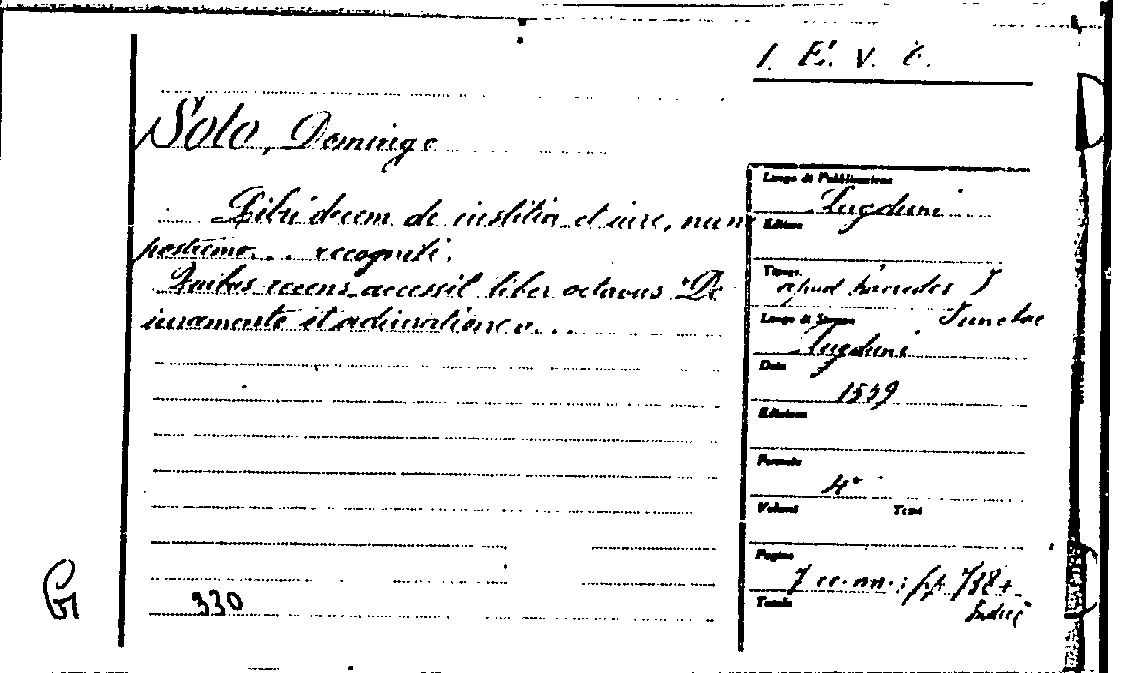 1. E. V. 6.
Soto, Domingo
Libri decem de iustitia et iure, nunc
postremo... recogniti.
Quibus recens accessit liber octavus "De
iuramento et adiuratione"...
Luogo di Pubblicazione
Lugduni
Editore
Tipogr.
apud haeredes J
Junctae
Luogo di Stampa
Lugduni
Data
1559
Edizione
Formato
4°
Volumi Tomi
Pagine
7 cc. nn.; pp. 788 +
Indici
Totale
330